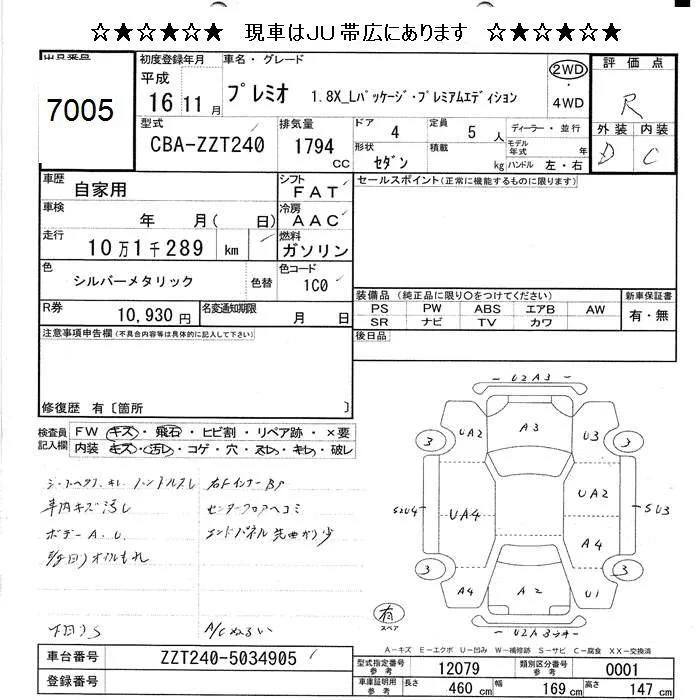 ☆★☆★☆★ 現車はJU帯広にあります ☆★☆★☆★
出品番号
7005
初度登録年月
平成
16 11月
車名・グレード
プレミオ 1.8X_Lパッケージ・プレミアムエディション
2WD
・
4WD
評価点
R
外装 内装
D C
型式
CBA-ZZT240
排気量
1794 cc
ドア 4
定員 5 人
ディーラー・並行
形状 セダン
積載 kg
モデル年式 年
ハンドル 左・右
車歴
自家用
シフト
FAT
セールスポイント(正常に機能するものに限ります)
車検
年 月( 日)
冷房
AAC
走行
10万1千289 km
燃料
ガソリン
色
シルバーメタリック
色替
色コード
1C0
R券
10,930円
名変通知期限
月 日
装備品 (純正品に限り○をつけてください)
新車保証書
PS PW ABS エアB AW
有・無
SR ナビ TV カワ
注意事項申告欄(不具合内容等は具体的に記入して下さい)
後日品
修復歴 有〔箇所 〕
検査員記入欄
FW キズ・飛石・ヒビ割・リペア跡・×要
内装 キズ・汚レ・コゲ・穴・スレ・キレ・破レ
ハンドルスレ
車内キズ汚し
センターフロアヘコミ
ボデーA.U.
エンドパネル
下回りS
-U2A3-
A3
UA2
U3
3
3
UA4
UA2
A4
S2U4
SU3
3
3
A4
A2
U1
有
スペア
A-キズ E-エクボ U-凹み W-補修跡 S-サビ C-腐食 XX-交換済
車台番号
ZZT240-5034905
登録番号
型式指定番号 参考
12079
類別区分番号 参考
0001
車庫証明用 参考
長さ 460 cm
幅 169 cm
高さ 147 cm